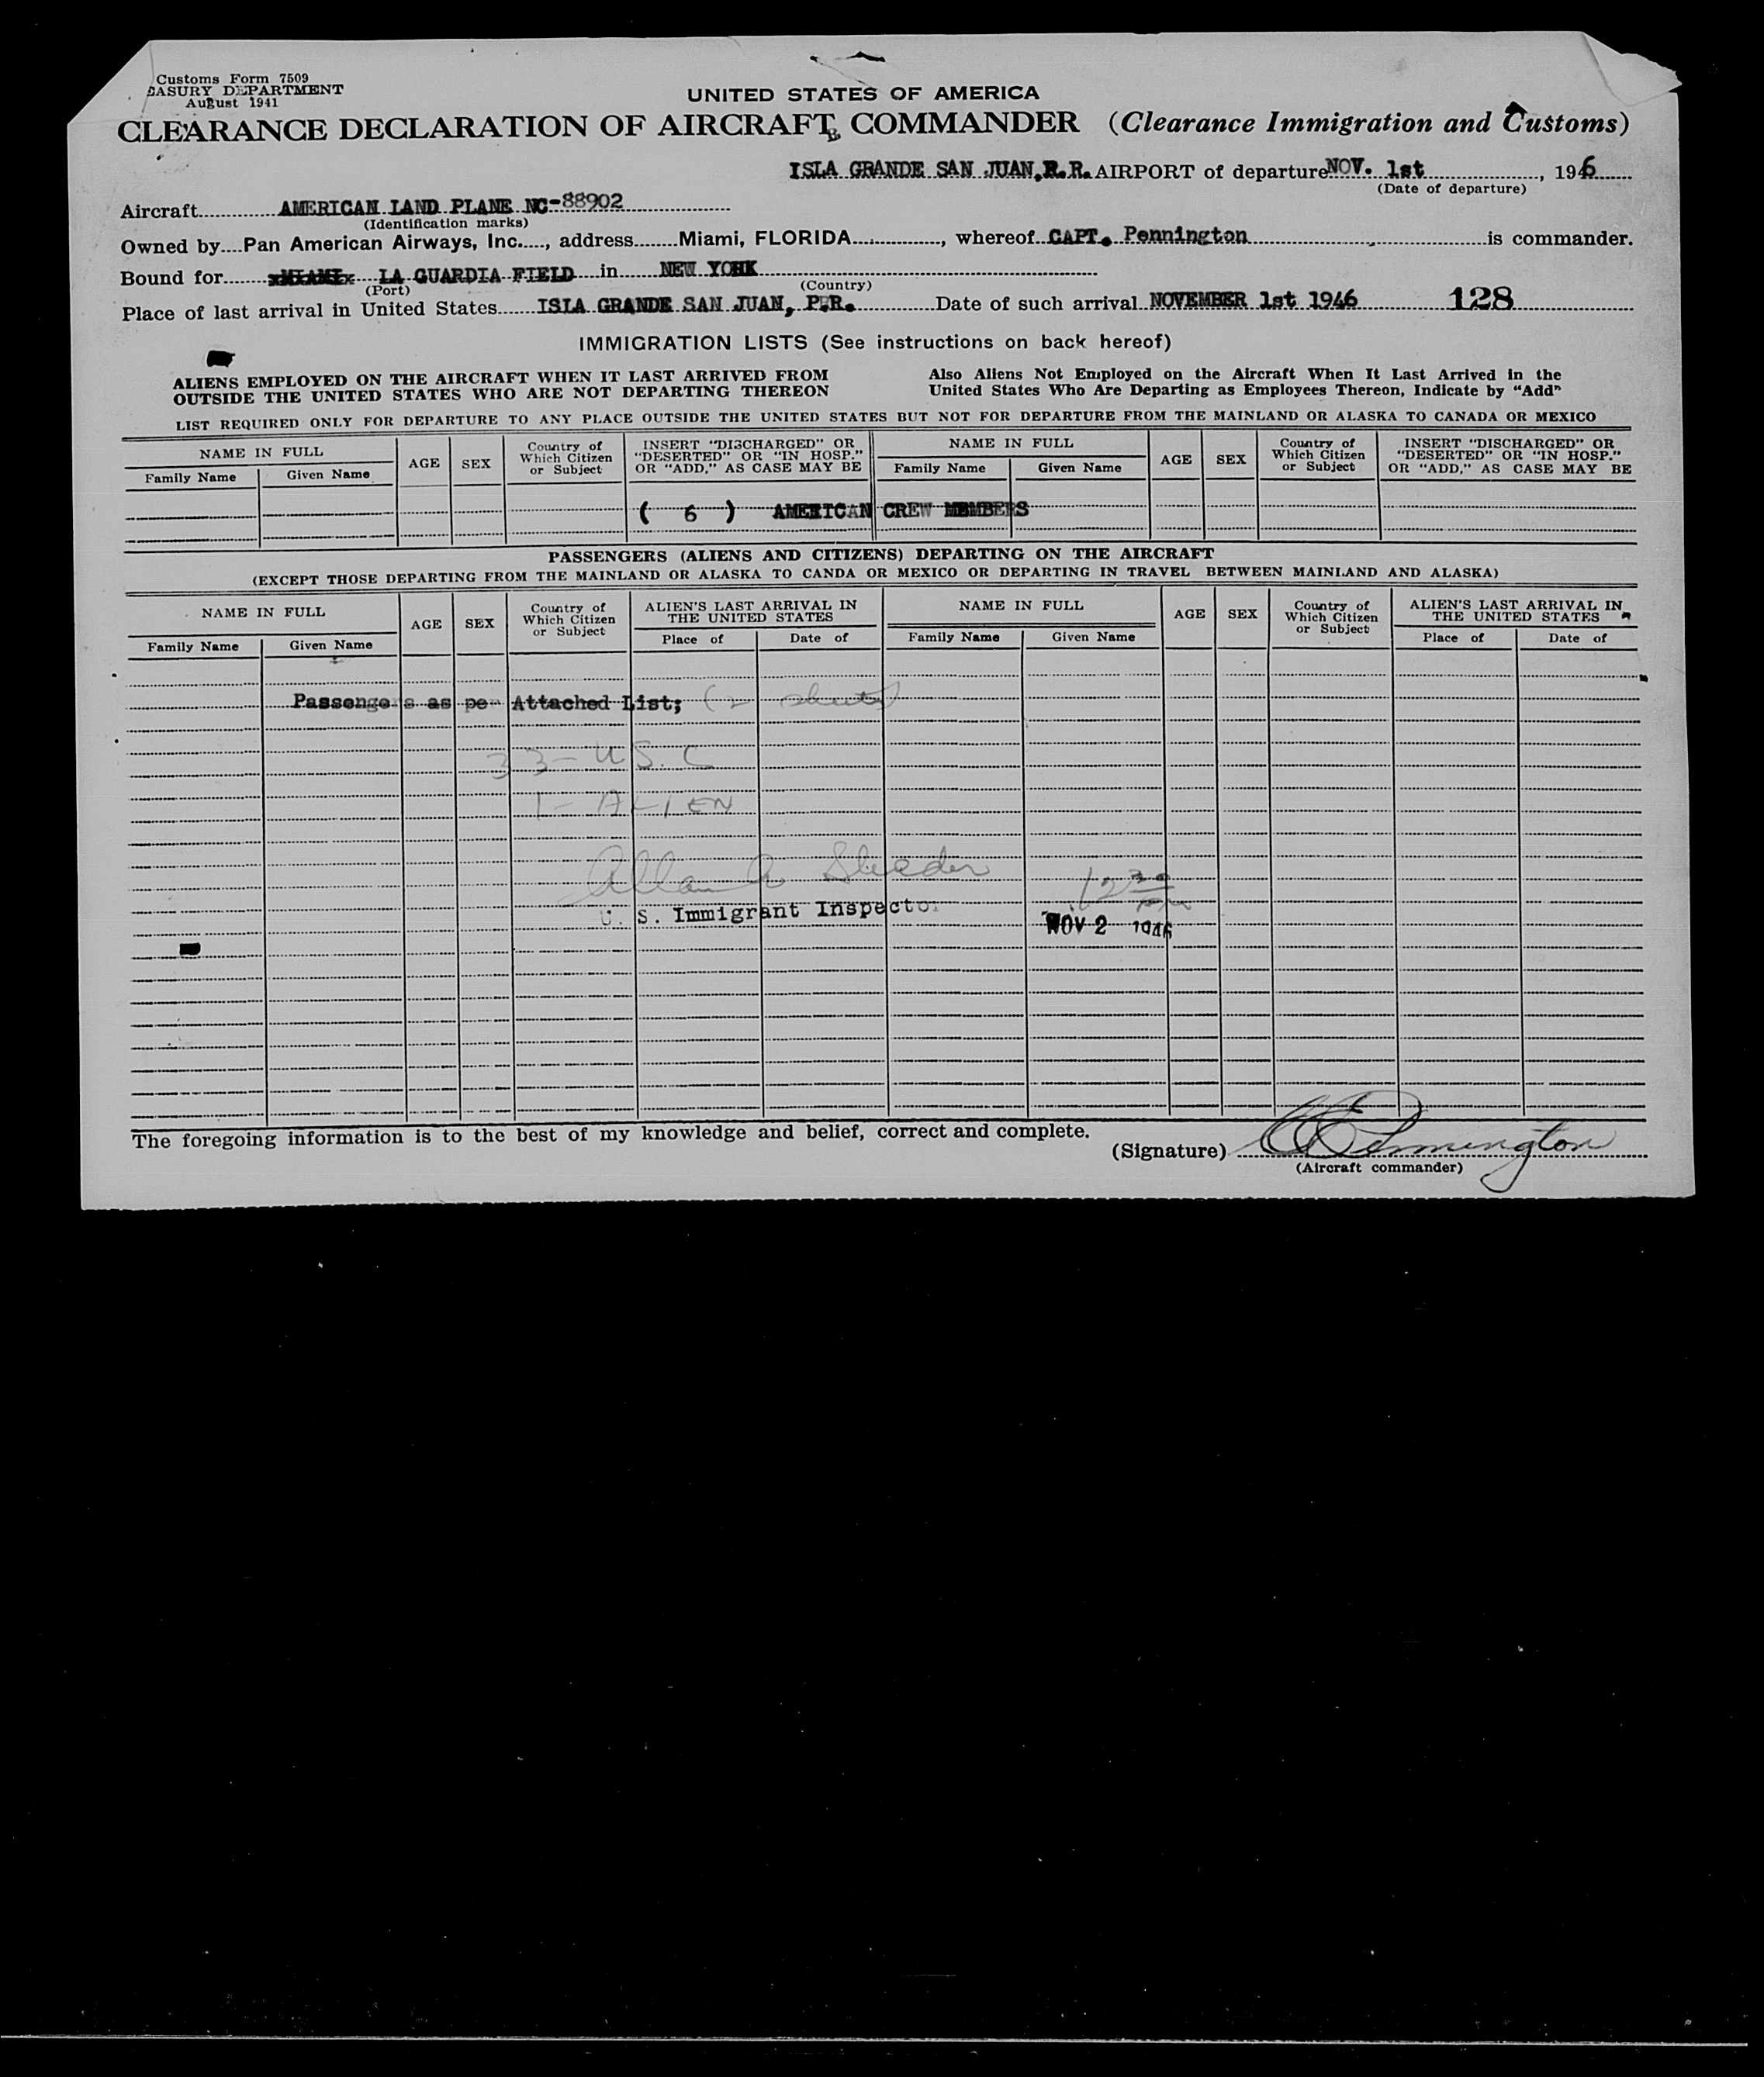 Customs Form 7509
EASURY DEPARTMENT
August 1941
UNITED STATES OF AMERICA
CLEARANCE DECLARATION OF AIRCRAFT COMMANDER (Clearance Immigration and Customs)
ISLA GRANDE SAN JUAN, P.R. AIRPORT of departure NOV. 1st, 1946
(Date of departure)
Aircraft AMERICAN LAND PLANE NC-88902
(Identification marks)
Owned by Pan American Airways, Inc., address Miami, FLORIDA, whereof CAPT. Pennington is commander.
Bound for xMIAMIx LA GUARDIA FIELD in NEW YORK
(Port) (Country)
Place of last arrival in United States ISLA GRANDE SAN JUAN, P.R. Date of such arrival NOVEMBER 1st 1946 128
IMMIGRATION LISTS (See instructions on back hereof)
ALIENS EMPLOYED ON THE AIRCRAFT WHEN IT LAST ARRIVED FROM OUTSIDE THE UNITED STATES WHO ARE NOT DEPARTING THEREON
Also Aliens Not Employed on the Aircraft When It Last Arrived in the United States Who Are Departing as Employees Thereon, Indicate by "Add"
LIST REQUIRED ONLY FOR DEPARTURE TO ANY PLACE OUTSIDE THE UNITED STATES BUT NOT FOR DEPARTURE FROM THE MAINLAND OR ALASKA TO CANADA OR MEXICO
NAME IN FULL AGE SEX Country of Which Citizen or Subject INSERT "DISCHARGED" OR "DESERTED" OR "IN HOSP." OR "ADD," AS CASE MAY BE NAME IN FULL AGE SEX Country of Which Citizen or Subject INSERT "DISCHARGED" OR "DESERTED" OR "IN HOSP." OR "ADD," AS CASE MAY BE
Family Name Given Name Family Name Given Name
( 6 ) AMERICAN CREW MEMBERS
PASSENGERS (ALIENS AND CITIZENS) DEPARTING ON THE AIRCRAFT
(EXCEPT THOSE DEPARTING FROM THE MAINLAND OR ALASKA TO CANDA OR MEXICO OR DEPARTING IN TRAVEL BETWEEN MAINLAND AND ALASKA)
NAME IN FULL AGE SEX Country of Which Citizen or Subject ALIEN'S LAST ARRIVAL IN THE UNITED STATES NAME IN FULL AGE SEX Country of Which Citizen or Subject ALIEN'S LAST ARRIVAL IN THE UNITED STATES
Family Name Given Name Place of Date of Family Name Given Name Place of Date of
Passengers as per Attached List; (2 sheets)
33 - U.S.C
1 - ALIEN
12 30 pm
U. S. Immigrant Inspector
NOV 2 1946
The foregoing information is to the best of my knowledge and belief, correct and complete.
(Signature) Pennington
(Aircraft commander)